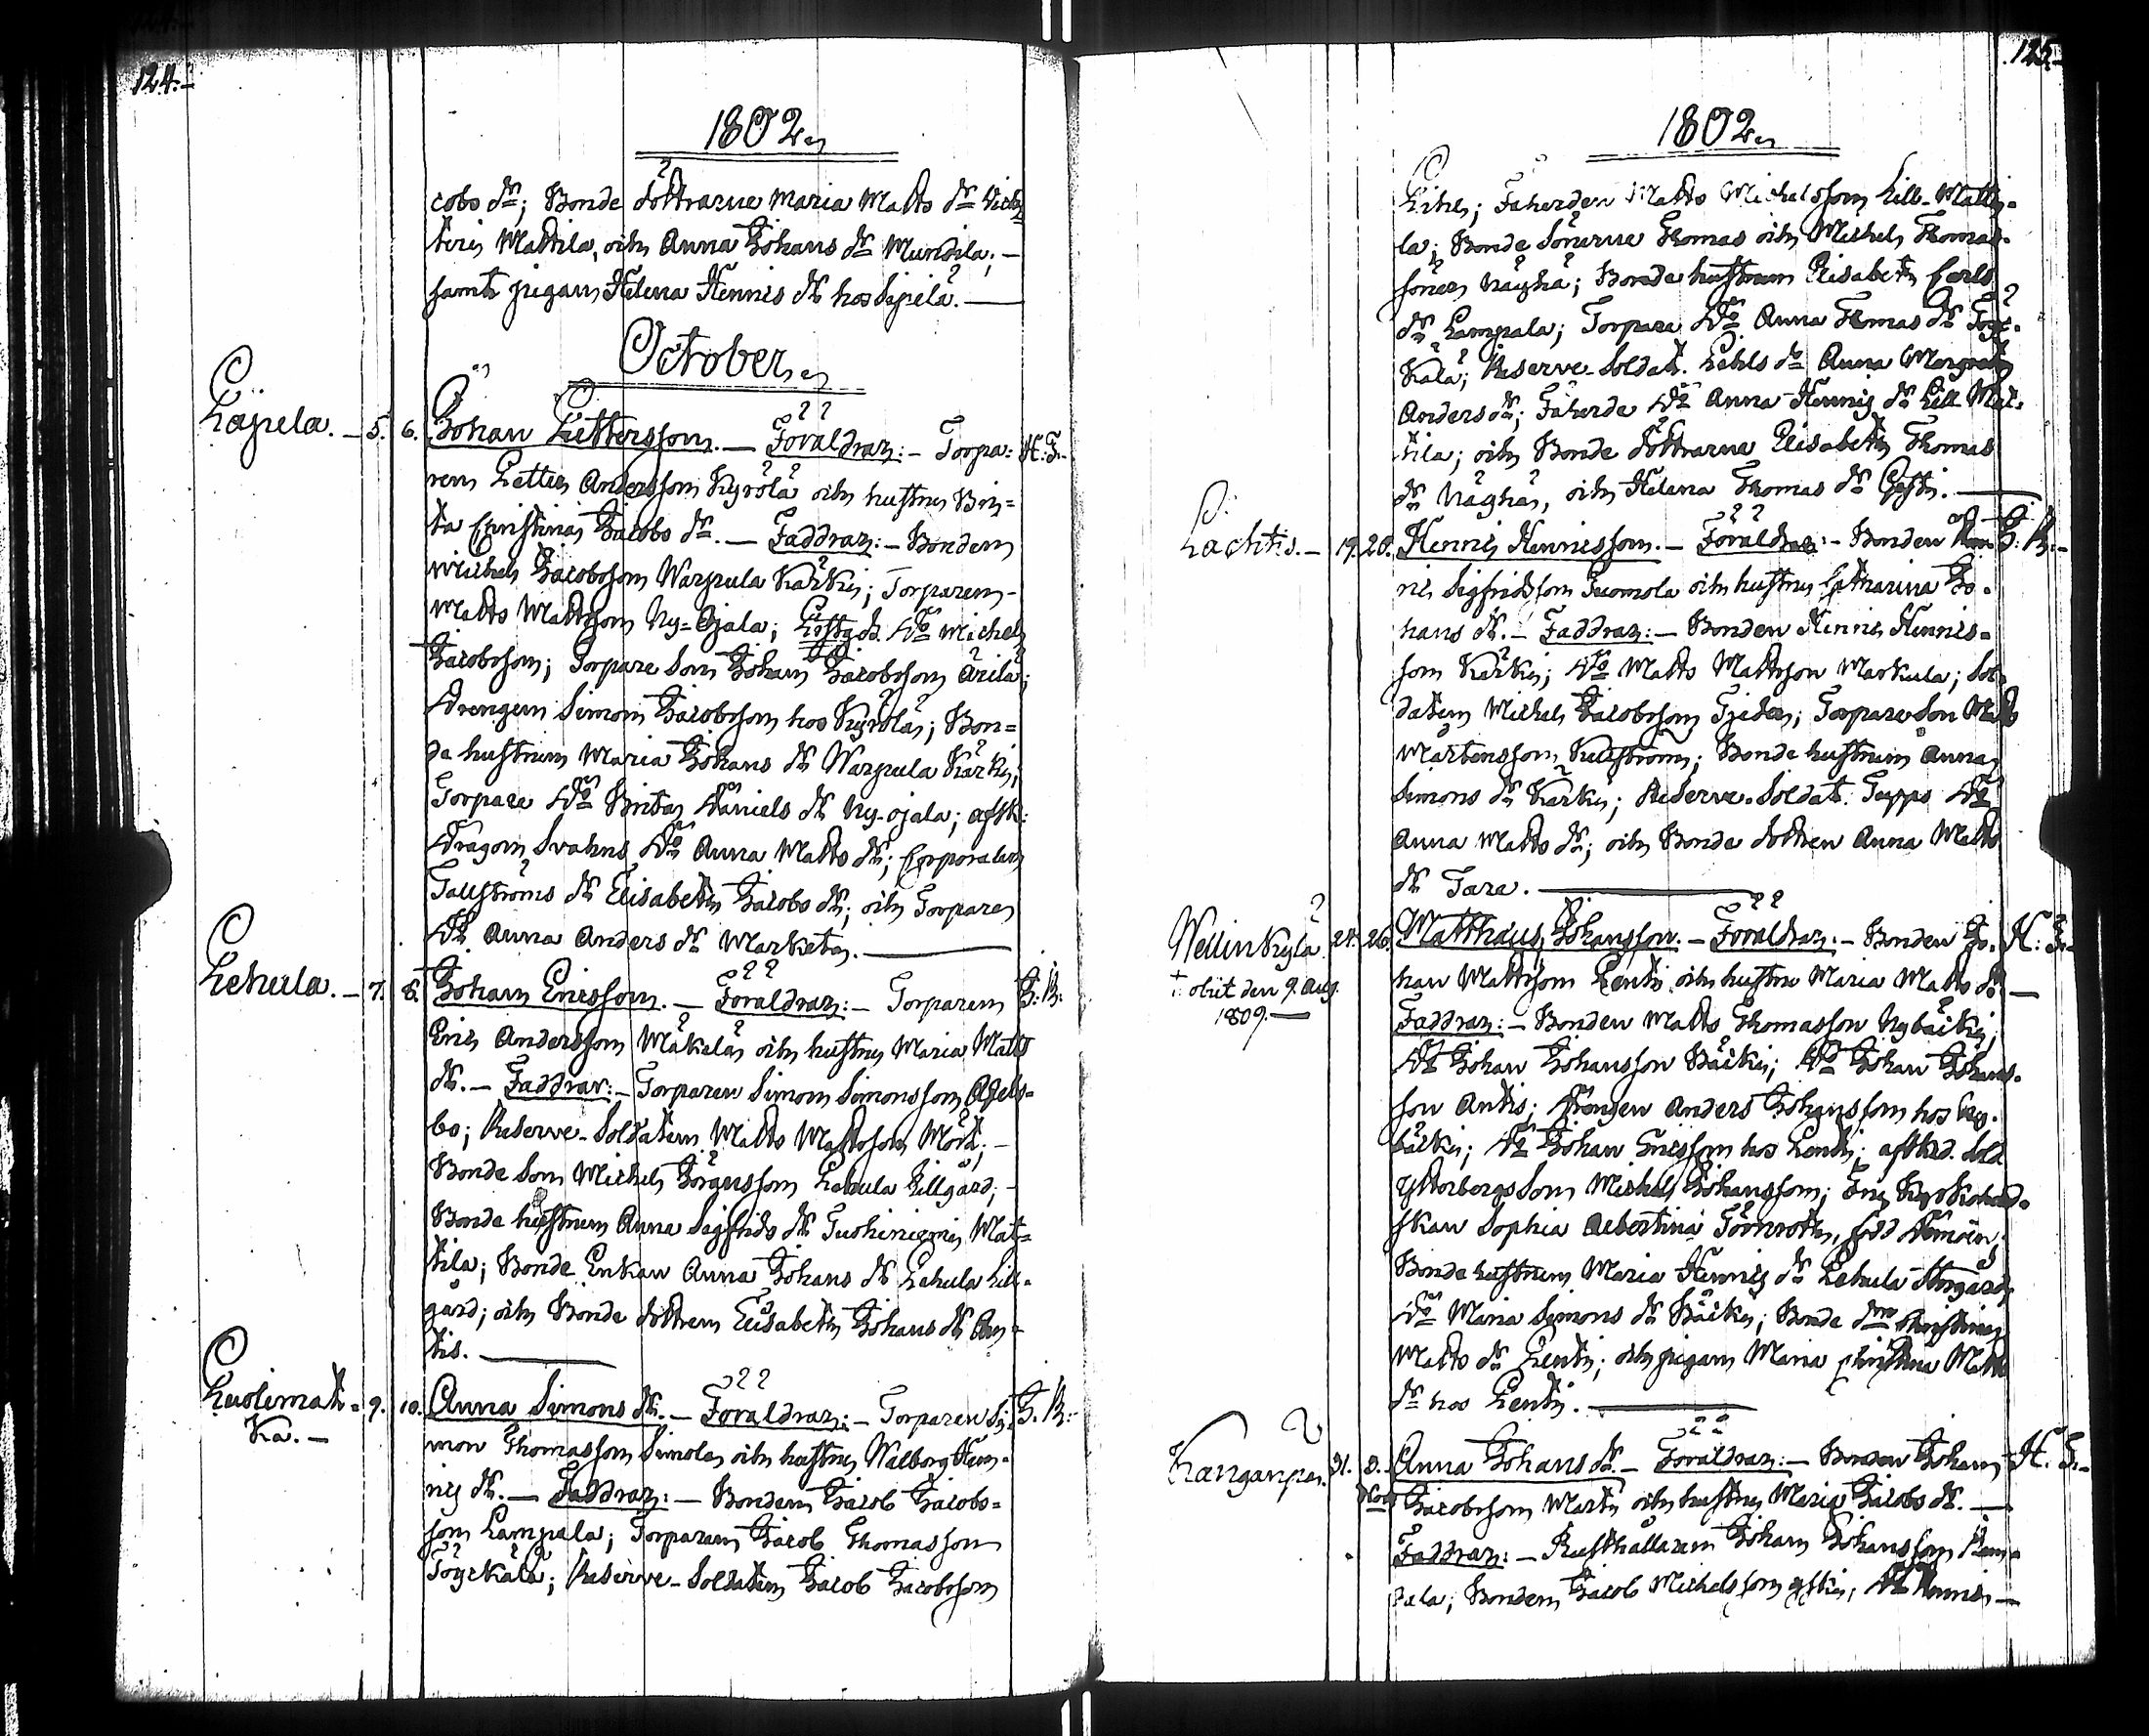 124.
1802.
cobs dr; Bonde döttrarne Maria Matts dr
Mattila, och Anna Johans dr Mundila; —
samt pigan Helena Hennis dr hos Sipilä. —
October.
Läpela. — 5. 6. Johan Pettersson. — Föräldrar: — Torpa= H. F.
ren Petter Andersson Kyrölä och hustru Bri=
ta Christina Jacobs dr. — Faddrar: — Bonden
Michel Jacobsson Warpula Kärki; Torparen
Matts Mattsson Ny-Ojala; Do Michel
Jacobsson; Torpare Son Johan Jacobsson Arila;
Drengen Simon Jacobsson hos Kyrölä; Bon=
de hustrun Maria Johans dr Warpula Kärki;
Torpare Do Brita Daniels dr Ny-ojala; afsk:
Dragon Svahns Do Anna Matts dr; Corporalen
Tallströms dr Elisabeth Jacobs dr; och Torpare
Do Anna Anders dr Marketa. —
Lehula. — 7. 8. Johan Ericsson. — Föräldrar: — Torparen J. R.
Eric Andersson Mäkelä och hustru Maria Matts
dr. — Faddrar: — Torparen Simon Simonsson
bo; Reserve-Soldaten Matts Mattsson Mört; —
Bonde Son Michel Jöransson Lehula Lillgård; —
Bonde hustrun Anna Sigfrids dr Tuohiniemi Mat=
tila; Bonde Enkan Anna Johans dr Lehula Lill=
gård; och Bonde dottren Elisabeth Johans dr An=
tis. —
Luolimat= 9. 10. Anna Simons dr. — Föräldrar: — Torparen Si= J. R.
ka. — mon Thomasson Simola och hustru Walborg Hen=
nis dr. — Faddrar: — Bonden Jacob Jacobs=
son Lampala; Torparen Jacob Thomasson
Töyrkälä; Reserve-Soldaten Jacob Jacobsson
125.
1802.
Faherden Matts Michelsson Lill-Matti=
la; Bonde Sönerne Thomas och Michel Thomas=
söner Näghä; Bonde hustrun Elisabeth Carls
dr Lampala; Torpare Do Anna Thomas dr Töyr=
kälä; Reserve-Soldat. dr Anna Margreta
Anders dr; Faherde Do Anna Hennis dr Lill Mat=
tila; och Bonde döttrarne Elisabeth Thomas
dr Näghä, och Helena Thomas dr
Lachtis. — 19. 20. Hennis Hennisson. — Föräldrar: — Bonden Hen= J. R.
nis Sigfridsson Tuomola och hustru Catharina Jo=
hans dr. — Faddrar: — Bonden Hennis Hennis=
son Kärki; Do Matts Mattsson Markula; Sol=
daten Michel Jacobsson Torpare Son Matts
Mårtensson Bonde hustrun Anna
Simons dr Kärki; Reserve-Soldat. Do
Anna Matts dr; och Bonde dottren Anna Matts
dr Tara. —
Wellinkylä. 24. 26. Matthæus Johansson. — Föräldrar: — Bonden Jo= H. F.
† obiit den 9. Aug. han Mattsson Pentti och hustru Maria Matts dr —
1809. — Faddrar: — Bonden Matts Thomasson Nybäcki;
Do Johan Johansson Bäcki; Do Johan Johans=
son Antis; Drengen Anders Johansson hos Ny=
bäcki; Do Johan Ericsson hos Pentti; afsked. Sold.
Ytterbergs Son Michel Johansson;
skan Sophia Albertina Törnroth, född
Bonde hustrun Maria Hennis dr Lehula Storgård;
Do Maria Simons dr Bäcki; Bonde dren Christina
Matts dr Pentti; och pigan Maria Christina Matts
dr hos Pentti. —
Kanganpä. 31. 3. Anna Johans dr. — Föräldrar: — Bonden Johan H. F.
Nov. Jacobsson Marti och hustru Maria Jacobs dr. —
Faddrar: — Rusthållaren Johan Johansson
Bonden Jacob Michelsson Do Hennis —